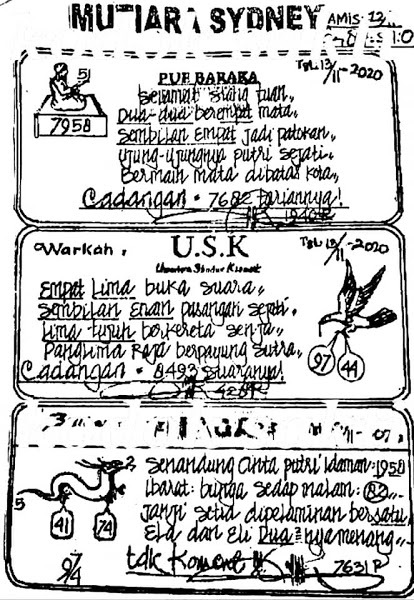 SYDNEY
PUE BARAKA
TGL. 13/11-2020
7958
Selamat siang tuan,,
Dua-dua berempat mata,,
Sembilan Empat jadi patokan,,
Ujung-ujungnya putri sejati,,
Bermain mata dibatas kota,,
Cadangan = 7682 Pariannya!
Warkah,
U.S.K
TGL. 13/11-2020
Empat Lima buka suara,,
Sembilan Enam pasangan sejati,
Lima tujuh berkereta senja,,
Panglima Raja berpayung sutra,,
Cadangan = 8493 suaranya!
97
44
Senandung Cinta putri idaman: 1958
Ibarat: bunga sedap malam: 82,,
Janji setia dipelaminan bersatu,
Ela dan Eli Dua =nya menang,,
tdk Koment
7631 P
5
2
41
74
9/4